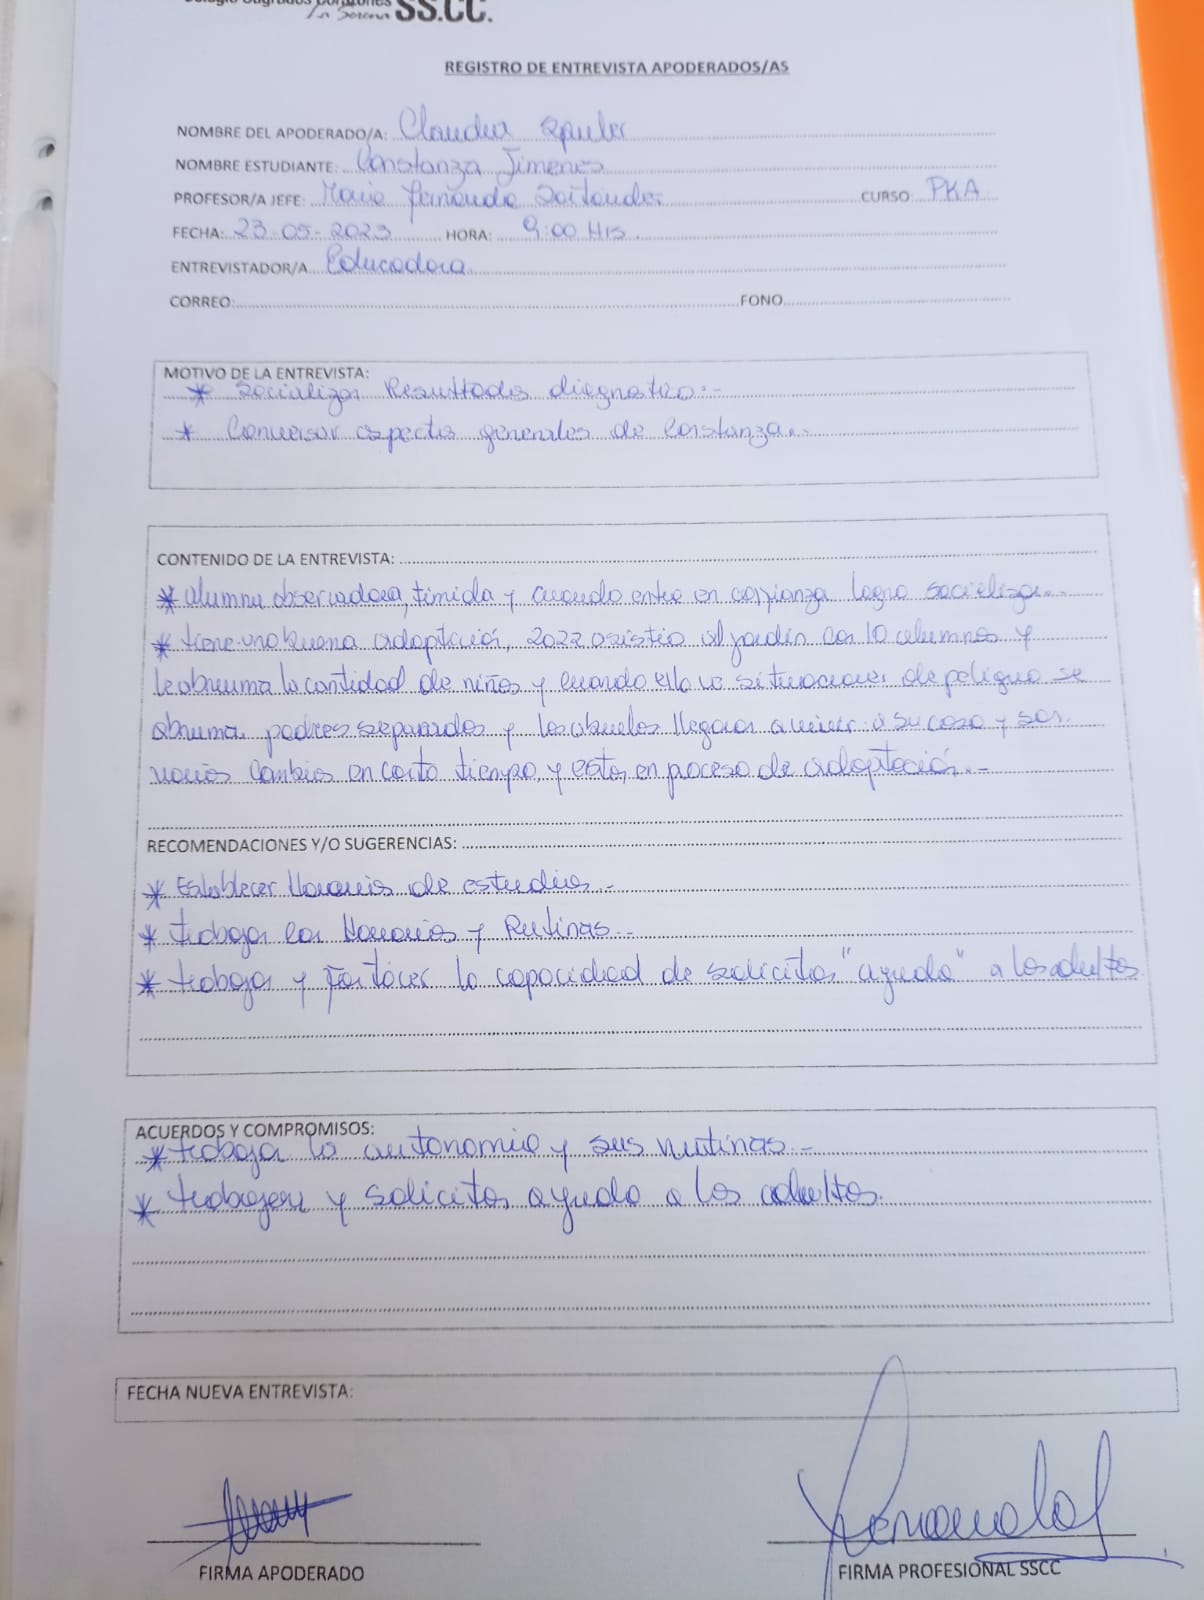 Colegio Sagrados Corazones
La Serena SS.CC.
REGISTRO DE ENTREVISTA APODERADOS/AS
NOMBRE DEL APODERADO/A: Claudia
NOMBRE ESTUDIANTE: Constanza Jimenes
PROFESOR/A JEFE: Maria Fernanda Santander CURSO: PKA
FECHA: 23-05-2023 HORA: 9:00 Hrs.
ENTREVISTADOR/A Educadora
CORREO: FONO
MOTIVO DE LA ENTREVISTA:
* Socializar Resultados diagnostico.-
* Conversar aspectos generales de Constanza.-
CONTENIDO DE LA ENTREVISTA:
* Alumna observadora, timida y cuando entra en confianza logra socializar.-
* tiene una buena adaptación, 2022 asistio al jardin con 10 alumnos y
le abruma la cantidad de niños y cuando ella ve situaciones de peligro se
abruma, padres separados y los abuelos llegaron a vivir a su casa y son
varios cambios en corto tiempo y esta en proceso de adaptación.-
RECOMENDACIONES Y/O SUGERENCIAS:
* Establecer Horarios de estudios.-
* trabajar con Horarios y Rutinas.-
* trabajar y Fortalecer la capacidad de solicitar "ayuda" a los adultos
ACUERDOS Y COMPROMISOS:
* trabajar la autonomia y sus rutinas.-
* trabajar y solicitar ayuda a los adultos.
FECHA NUEVA ENTREVISTA:
FIRMA APODERADO
FIRMA PROFESIONAL SSCC